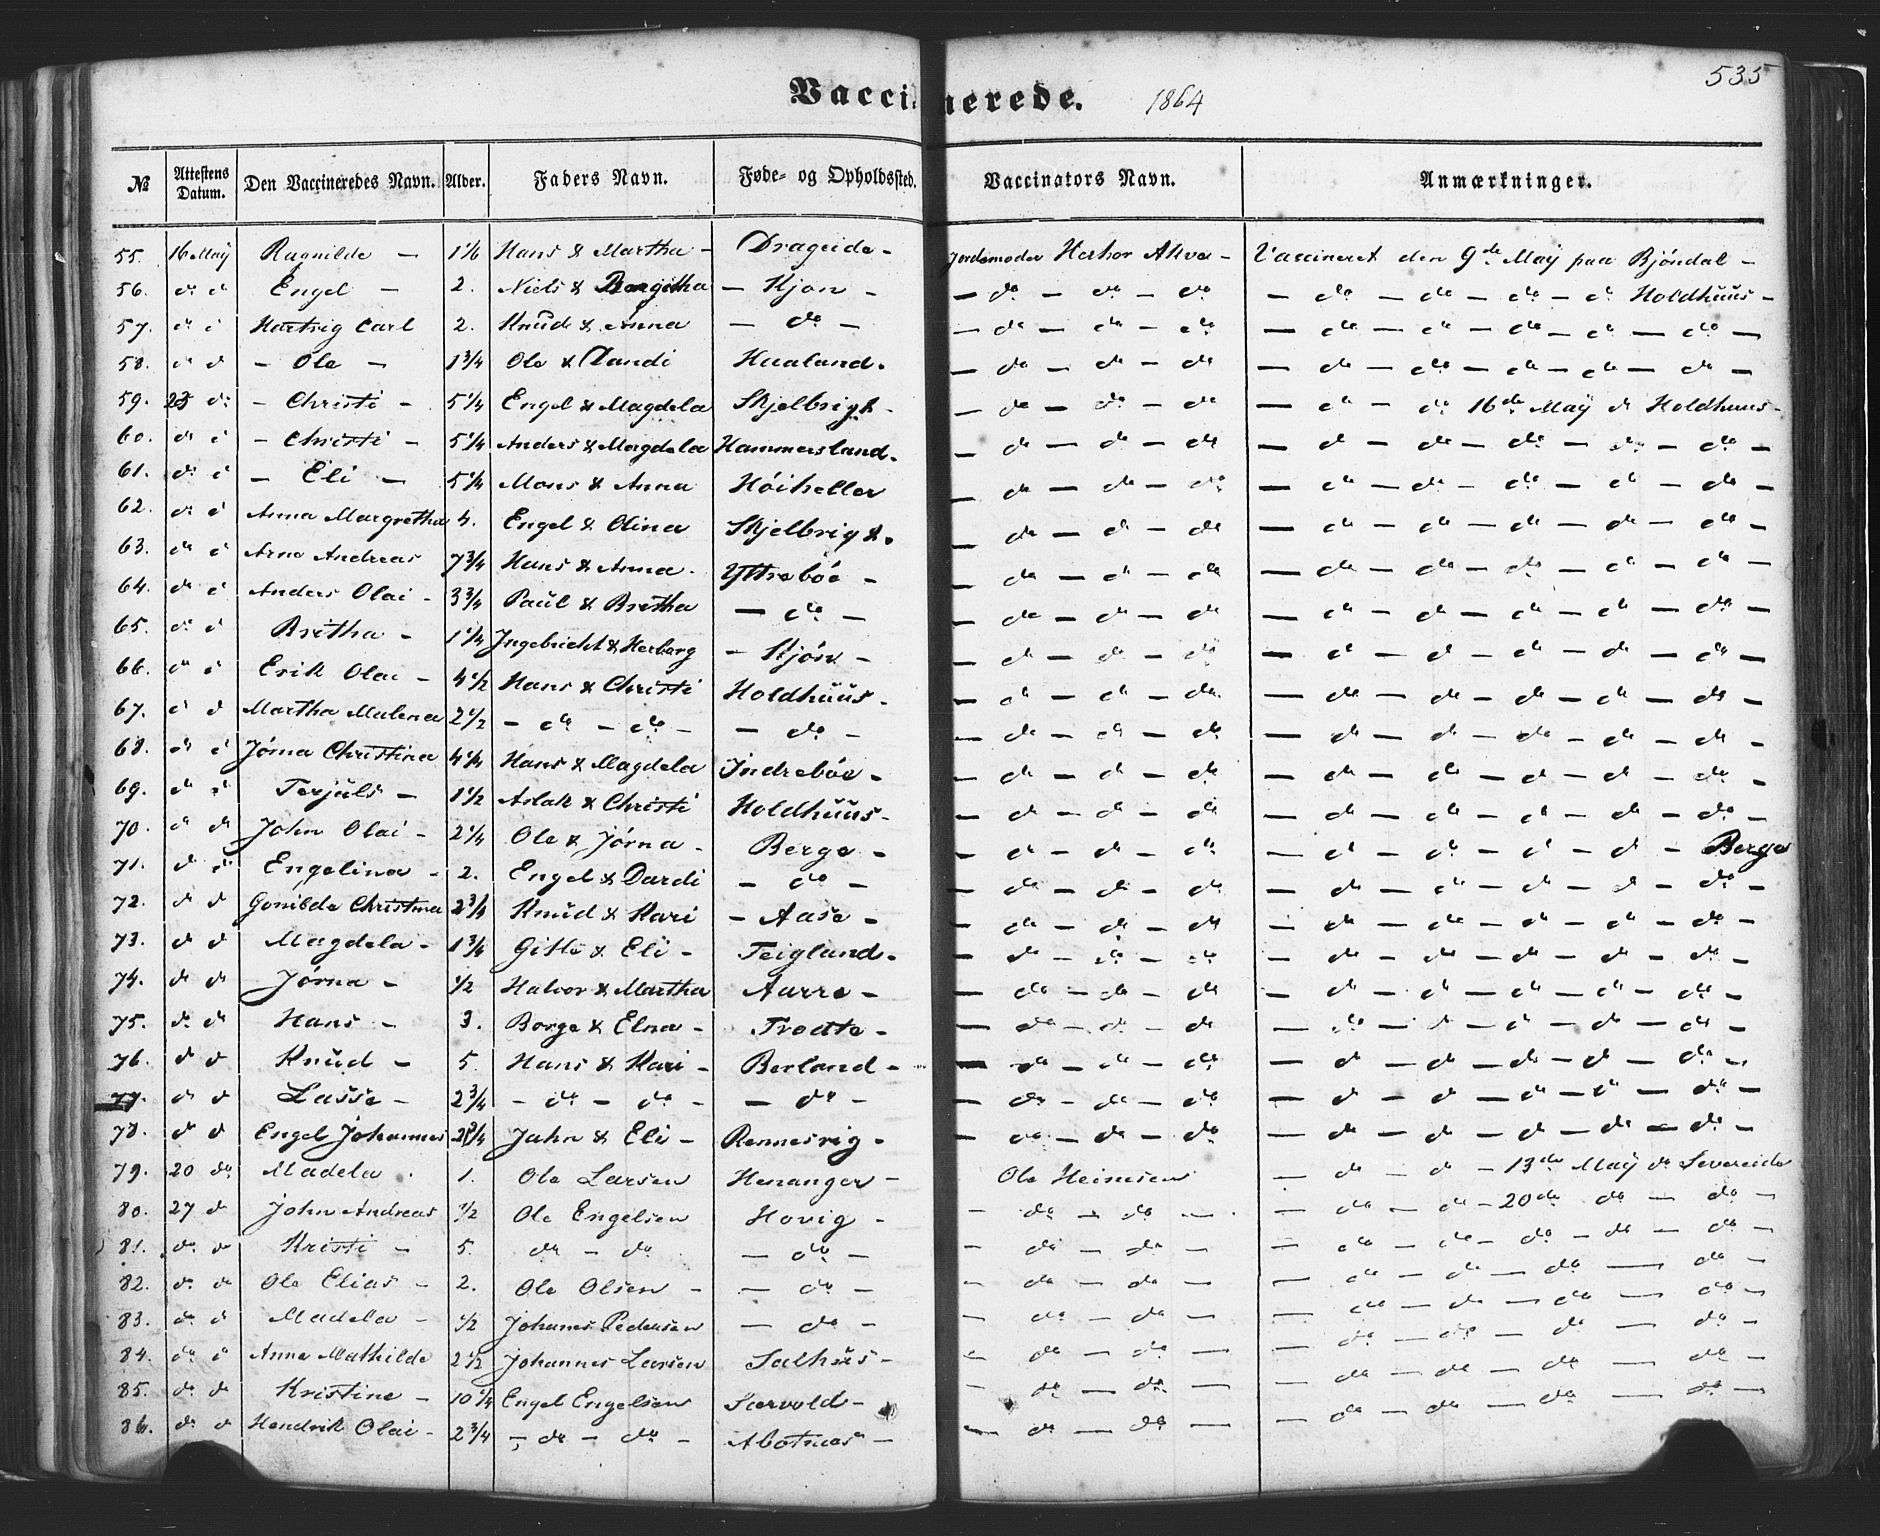 535
Vaccinerede. 1864
№ Attestens Datum. Den Vaccineredes Navn. Alder. Faders Navn. Føde- og Opholdssted. Vaccinators Navn. Anmærkninger.
55. 16 Maÿ Ragnilde — 1 1/6 Hans & Martha — Drageide — Jordemoder Vaccineret den 9de Maÿ paa Bjöndal —
56. do d Engel — 2. Niels & Bergitha — Skjon — — do — do — do — do — do — do — d Holdhuus —
57. do d Hartvig Carl 2. Knud & Anna — do — — do — do — do — do — do — do — d — do —
58. d d — Ole — 1 3/4 Ole & Dandi Haaland. — do — do — do — do — do — do — do — do —
59. 23 do — Christi — 5 1/4 Engel & Magdela Skjelbrigh. — do — do — do — do — do 16de Maÿ d Holdhuus —
60. do d — Christi — 5 1/4 Anders & Magdela Hammersland. — do — do — do — d — do — do — do — do —
61. do d — Eli — 5 1/4 Mons & Anna Höiheller — do — do — do — do — do — do — d — do —
62. do d Anna Margretha 4. Engel & Olina Skjelbrig &. — do — d — do — do — do — do — do — do —
63. do d Arne Andreas 7 3/4 Hans & Anna. Yttreböe — — do — d — do — do — do — do — do — do —
64. do d Anders Olai — 3 3/4 Paul & Bretha — do — — do — do — do — do — do — d — do — do —
65. do d Britha — 1 1/4 Ingebricht & Herborg — Skjön — — d — do — do — d — d — do — do — do —
66. do d Erik Olai — 4 1/2 Hans & Christi Holdhuus — — d — do — do — do — do — d — d — do —
67. d d Martha Malena 2 1/2 — do — do — — do — — d — do — do — do — do — do — do — do —
68. do d Jörna Christina 4 1/4 Hans & Magdela Indreböe — — d — do — do — do — do — d — d — do —
69. do do Terjuls — 1 1/2 Aslak & Christi Holdhuus — — d — do — d — do — do — d — do — do —
70. do do John Olai — 2 1/4 Ole & Jörna — Berge — — d — do — do — d — do — d — d — Berge
71. d do Engelina — 2. Engel & Dardi — do — — do — do — do — do — do — d — d — do —
72. do d Gonilde Christina 2 3/4 Knud & Kari — Aase — — do — do — do — do — do — do — do — do —
73. do d Magdela — 1 3/4 Gitle & Eli — Teigland. — do — do — do — do — do — do — do — do —
74. do do Jörna — 1/2 Halvor & Martha Aarre — — do — do — do — do — do — do — do — do —
75. do do Hans — 3. Borge & Elna — — do — do — do — do — d — do — do — do —
76. d d Knud — 5. Hans & Kari — Berland — — do — do — do — d — do — do — do — do —
77. do d Lasse — 2 3/4 — do — do — — do — — do — do — do — d — do — do — do — do —
78. do d Engel Johannes 2 3/4 Jahn & Eli — Rennesvig — — do — do — do — d — do — d — do — do —
79. 20 do Madela . 1. Ole Larsen Henanger — Ole Heinesen — do — d — 13de Maÿ do Sevareide
80. 27 do John Andreas 1/2 Ole Engelsen Hovig — — do — do — — do — do — 20de do — do —
81. do do Kristi — 5. do — do — do — — do — do — — do — do — do — do — do —
82. do do Ole Elias — 2. Ole Olsen — — do — — do — do — — do — do — do — do —
83. do d Madela — 1/2 Johannes Pedersen — do — — do — do — — do — do — do — do —
84. do d Anna Mathilde 2 1/2 Johannes Larsen Salhus — — do — do — — do — do — do — do —
85. do do Kristine — 10 1/4 Engel Engelsen Sævold — — do — do — — do — do — do — do —
86. do d Hendrik Olai — 2 3/4 — do — do — — — do — do — — do — do — do — do —